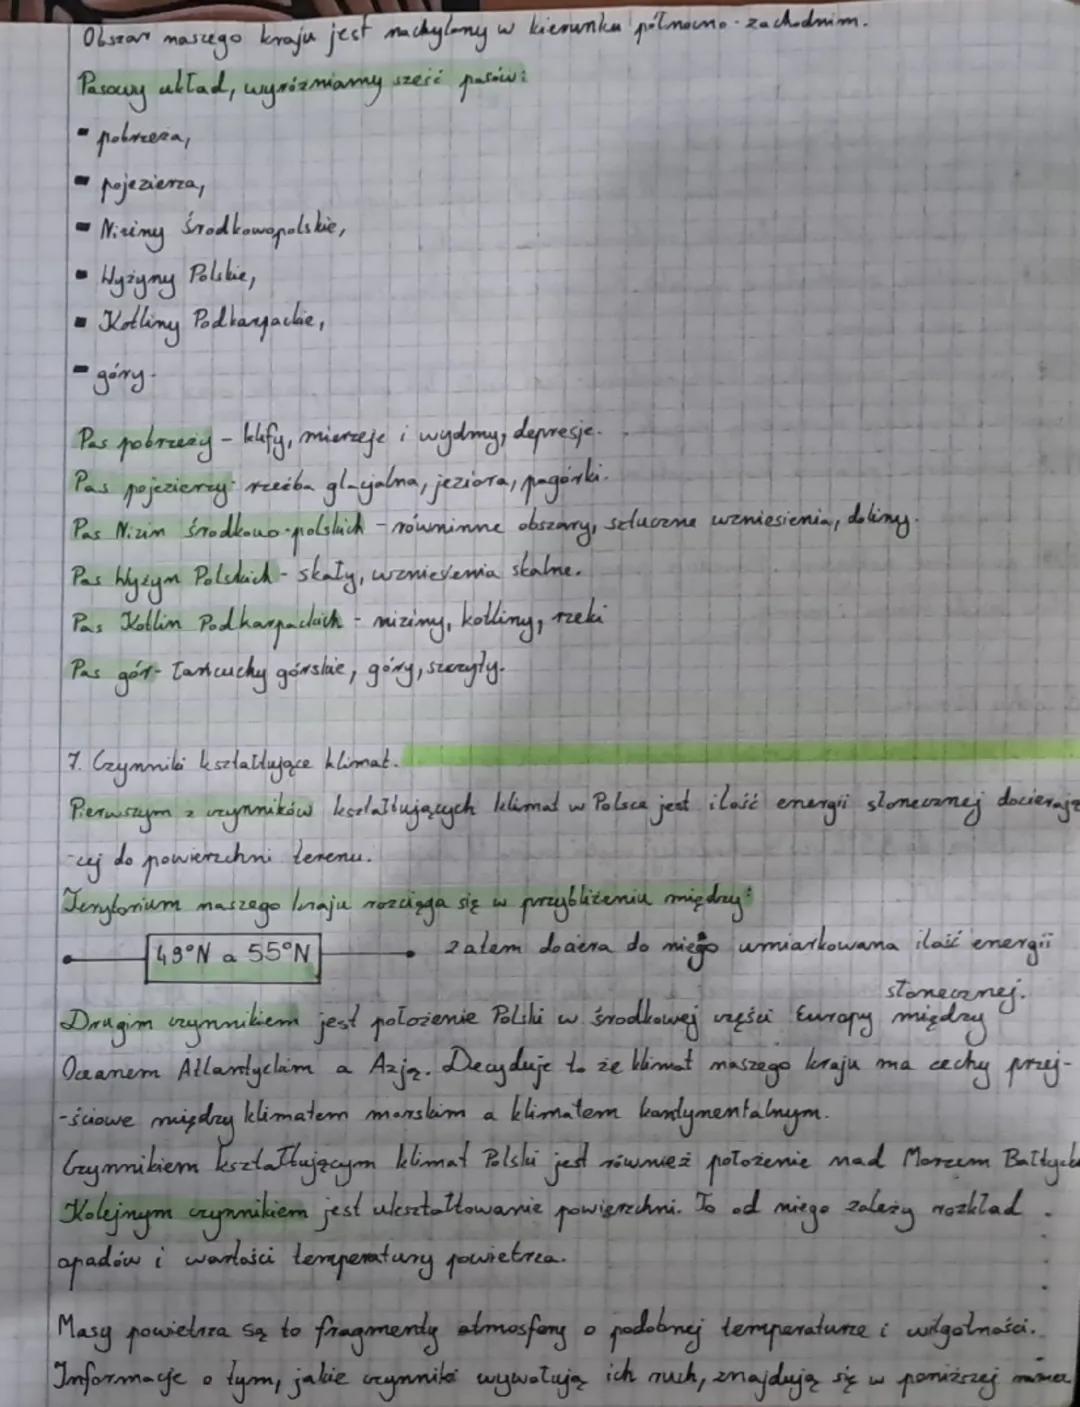 Obszar naszego kraju jest nachylony w kierunku północno-zachodnim.
Pasowy układ, wyróżniamy sześć pasów:
- pobrzeża,
- pojezierza,
- Niziny Środkowopolskie,
- Wyżyny Polskie,
- Kotliny Podkarpackie,
- góry.
Pas pobrzeży - klify, mierzeje i wydmy, depresje.
Pas pojezierzy - rzeźba glacjalna, jeziora, pagórki.
Pas Nizin środkowo-polskich - równinne obszary, sztuczne wzniesienia, doliny.
Pas Wyżyn Polskich - skały, wzniesienia skalne.
Pas Kotlin Podkarpackich - niziny, kotliny, rzeki
Pas gór - łańcuchy górskie, góry, szczyty.
7. Czynniki kształtujące klimat.
Pierwszym z czynników kształtujących klimat w Polsce jest ilość energii słonecznej docierają
-cej do powierzchni terenu.
Terytorium naszego kraju rozciąga się w przybliżeniu między:
49°N a 55°N zatem dociera do niego umiarkowana ilość energii
słonecznej.
Drugim czynnikiem jest położenie Polski w środkowej części Europy między
Oceanem Atlantyckim a Azją. Decyduje to że klimat naszego kraju ma cechy przej-
-ściowe między klimatem morskim a klimatem kontynentalnym.
Czynnikiem kształtującym klimat Polski jest również położenie nad Morzem
Kolejnym czynnikiem jest ukształtowanie powierzchni. To od niego zależy rozkład
opadów i wartości temperatury powietrza.
Masy powietrza są to fragmenty atmosfery o podobnej temperaturze i wilgotności.
Informacje o tym, jakie czynniki wywołują ich ruch, znajdują się w poniższej